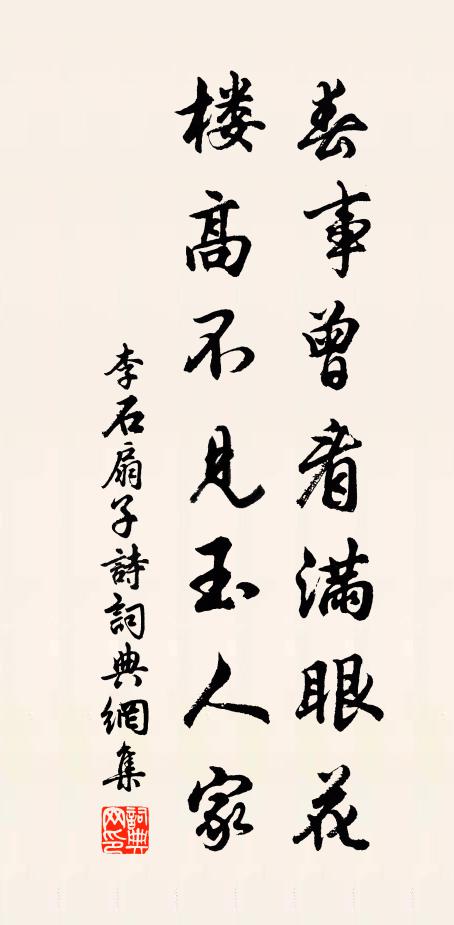 春事曾看滿眼花
楼高不見玉人家
李石扇子詩詞典網集
詞典网印